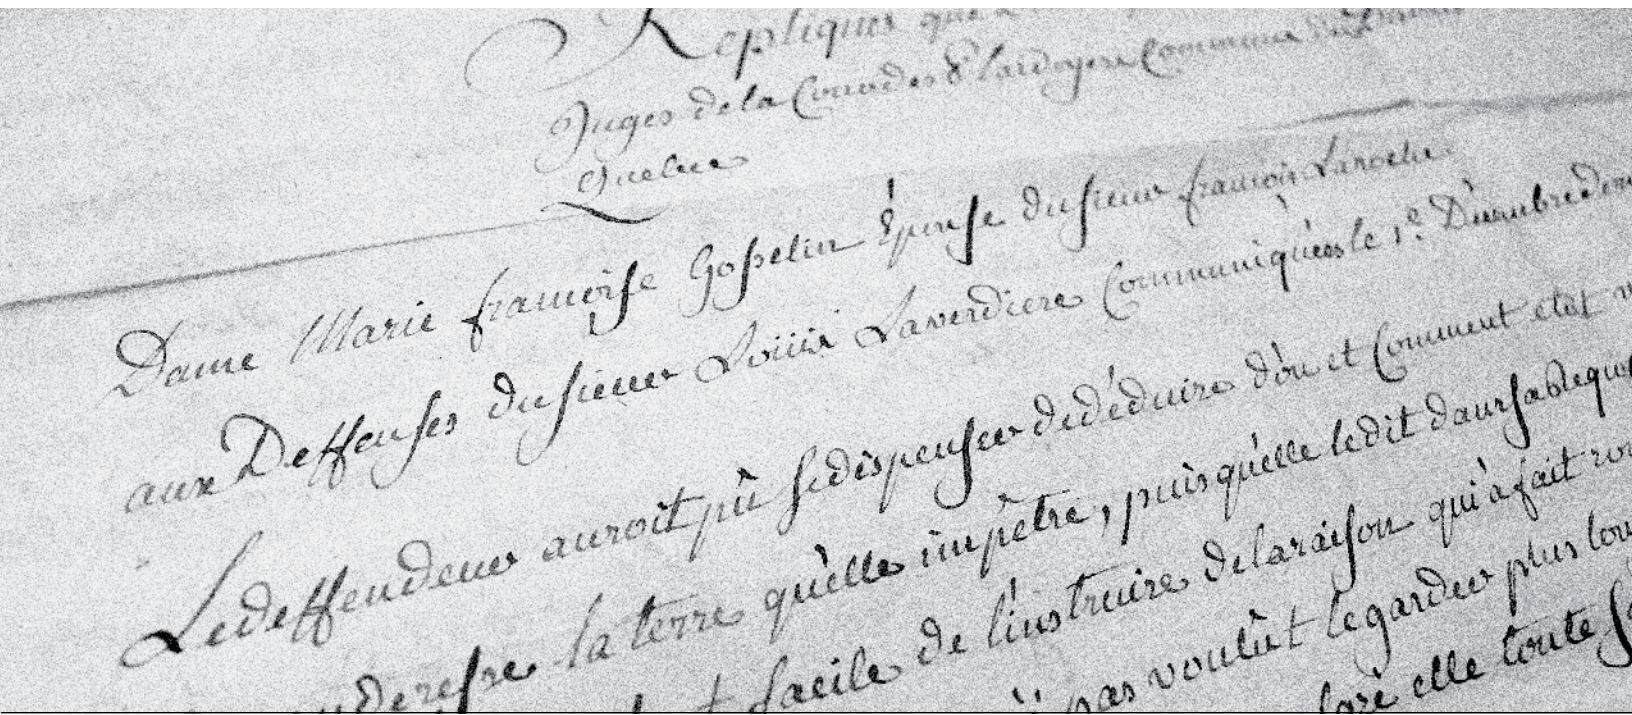 Repliques que
Juges de la Cour des Plaidoyers Communs
Quebec
Dame Marie françoise Gosselin Épouse du sieur françois Laroche
aux Deffenses du sieur Louis Laverdiere Communiquées le 1er Decembre
Le deffendeur auroit pû se dispenser de déduire d'òu et Comment
la terre qu'elle impètre, puisqu'elle le dit dans sa
facile de l'instruire de la raison qui a fait
pas voulût le garder plus
elle toute